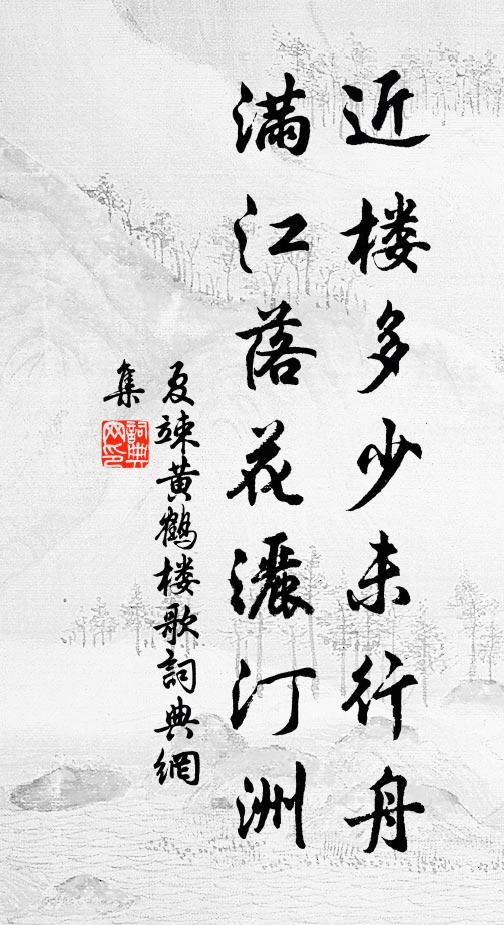 近楼多少未行舟
满江落花灑汀洲
夏竦黄鹤楼歌詞典網
集
詞典网印